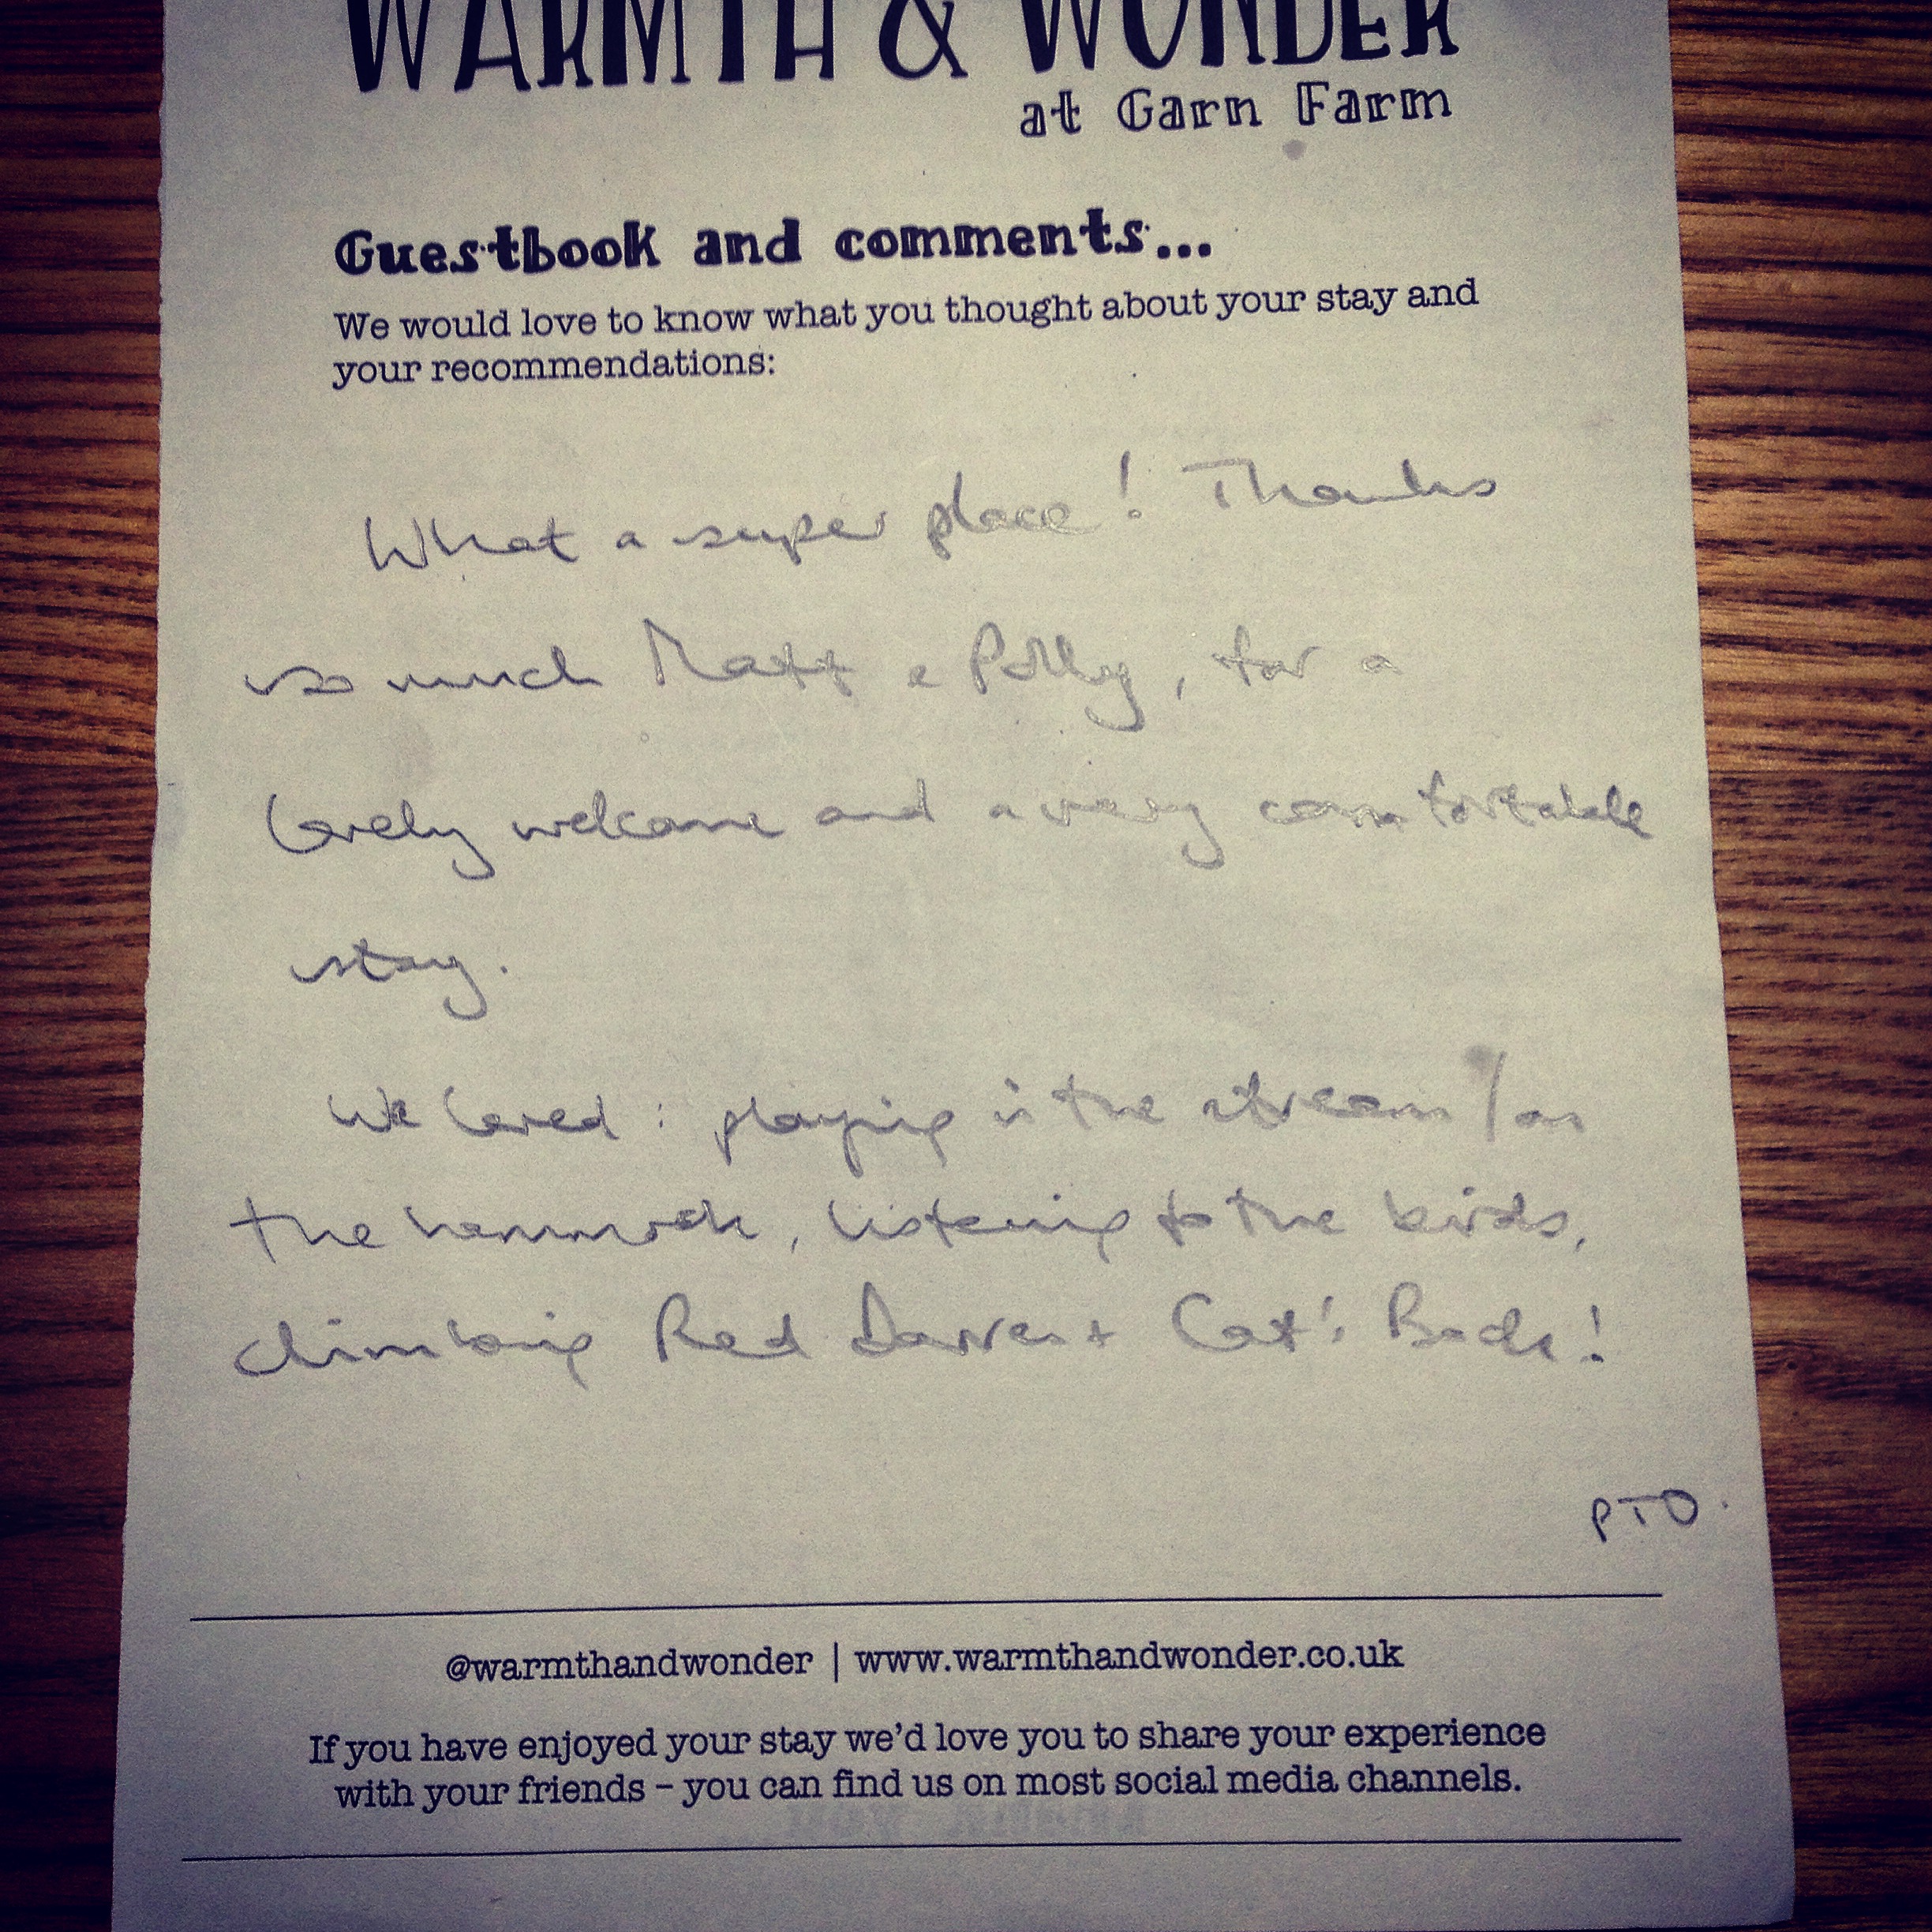 WARMTH & WONDER
at Garn Farm
Guestbook and comments...
We would love to know what you thought about your stay and
your recommendations:
What a super place! Thanks
so much Matt & Polly, for a
lovely welcome and a very comfortable
stay.
We loved: playing in the stream / on
the hammock, listening to the birds,
climbing Red Darren + Cat's Back!
PTO.
@warmthandwonder | www.warmthandwonder.co.uk
If you have enjoyed your stay we'd love you to share your experience
with your friends – you can find us on most social media channels.